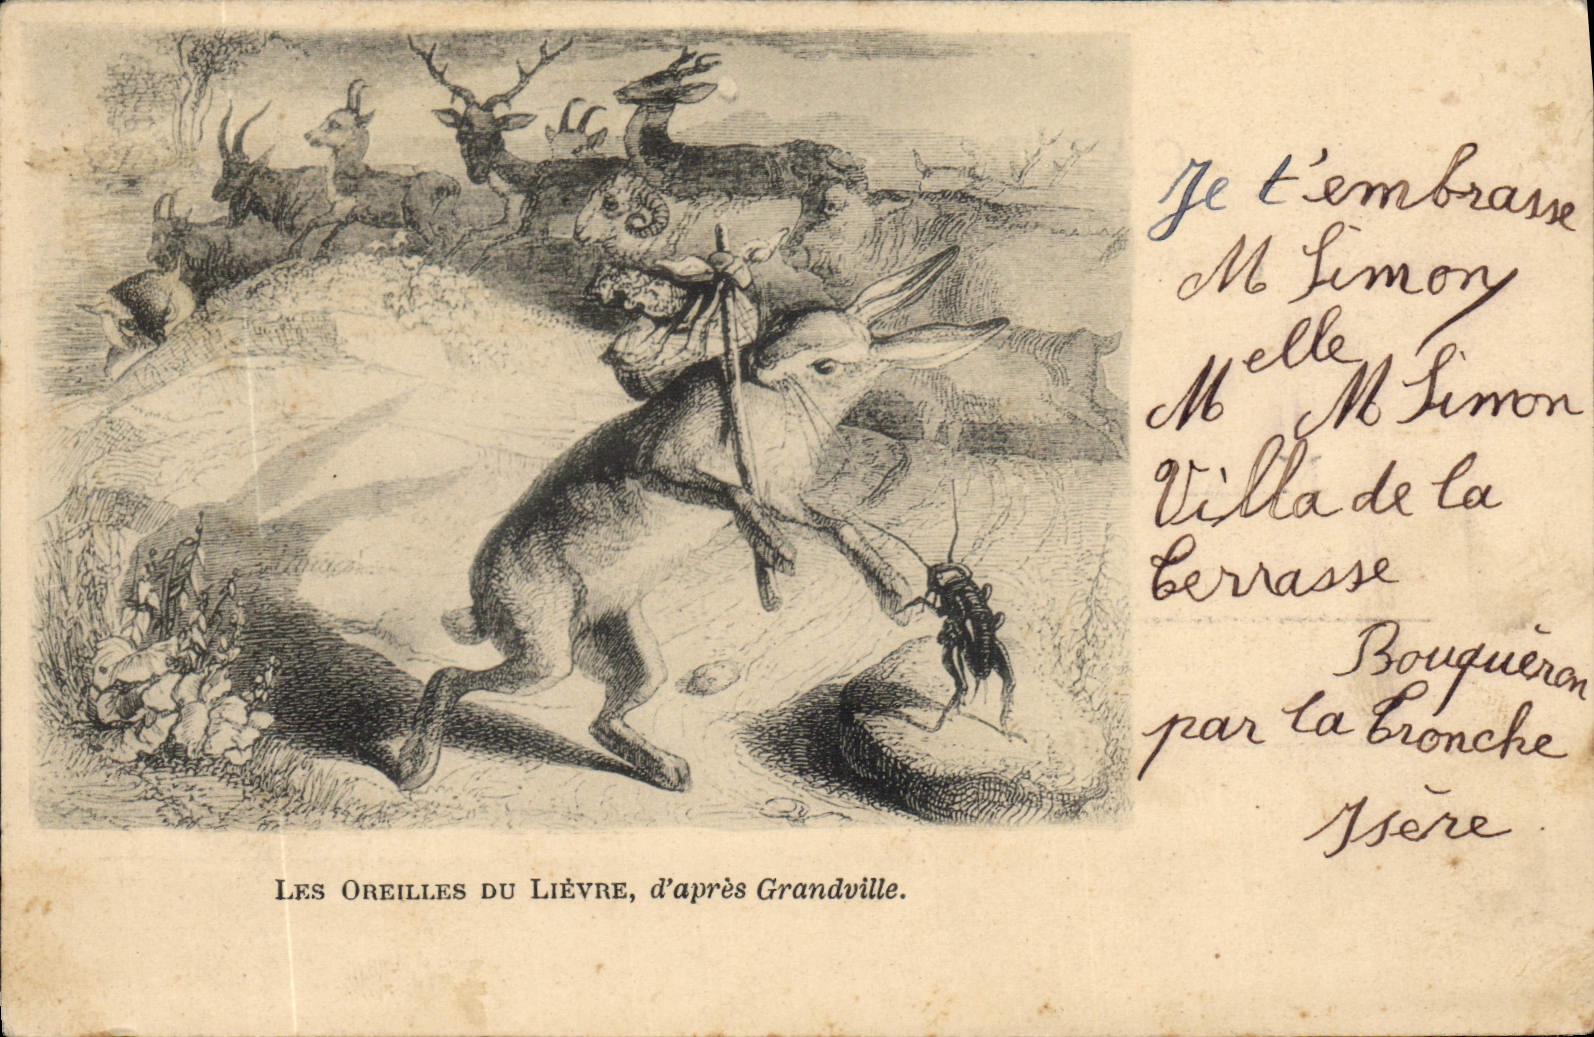 Je t'embrasse
M Simon
Melle M Simon
Villa de la
Terrasse
Bouquéron
par la Tronche
Isère
LES OREILLES DU LIÈVRE, d'après Grandville.